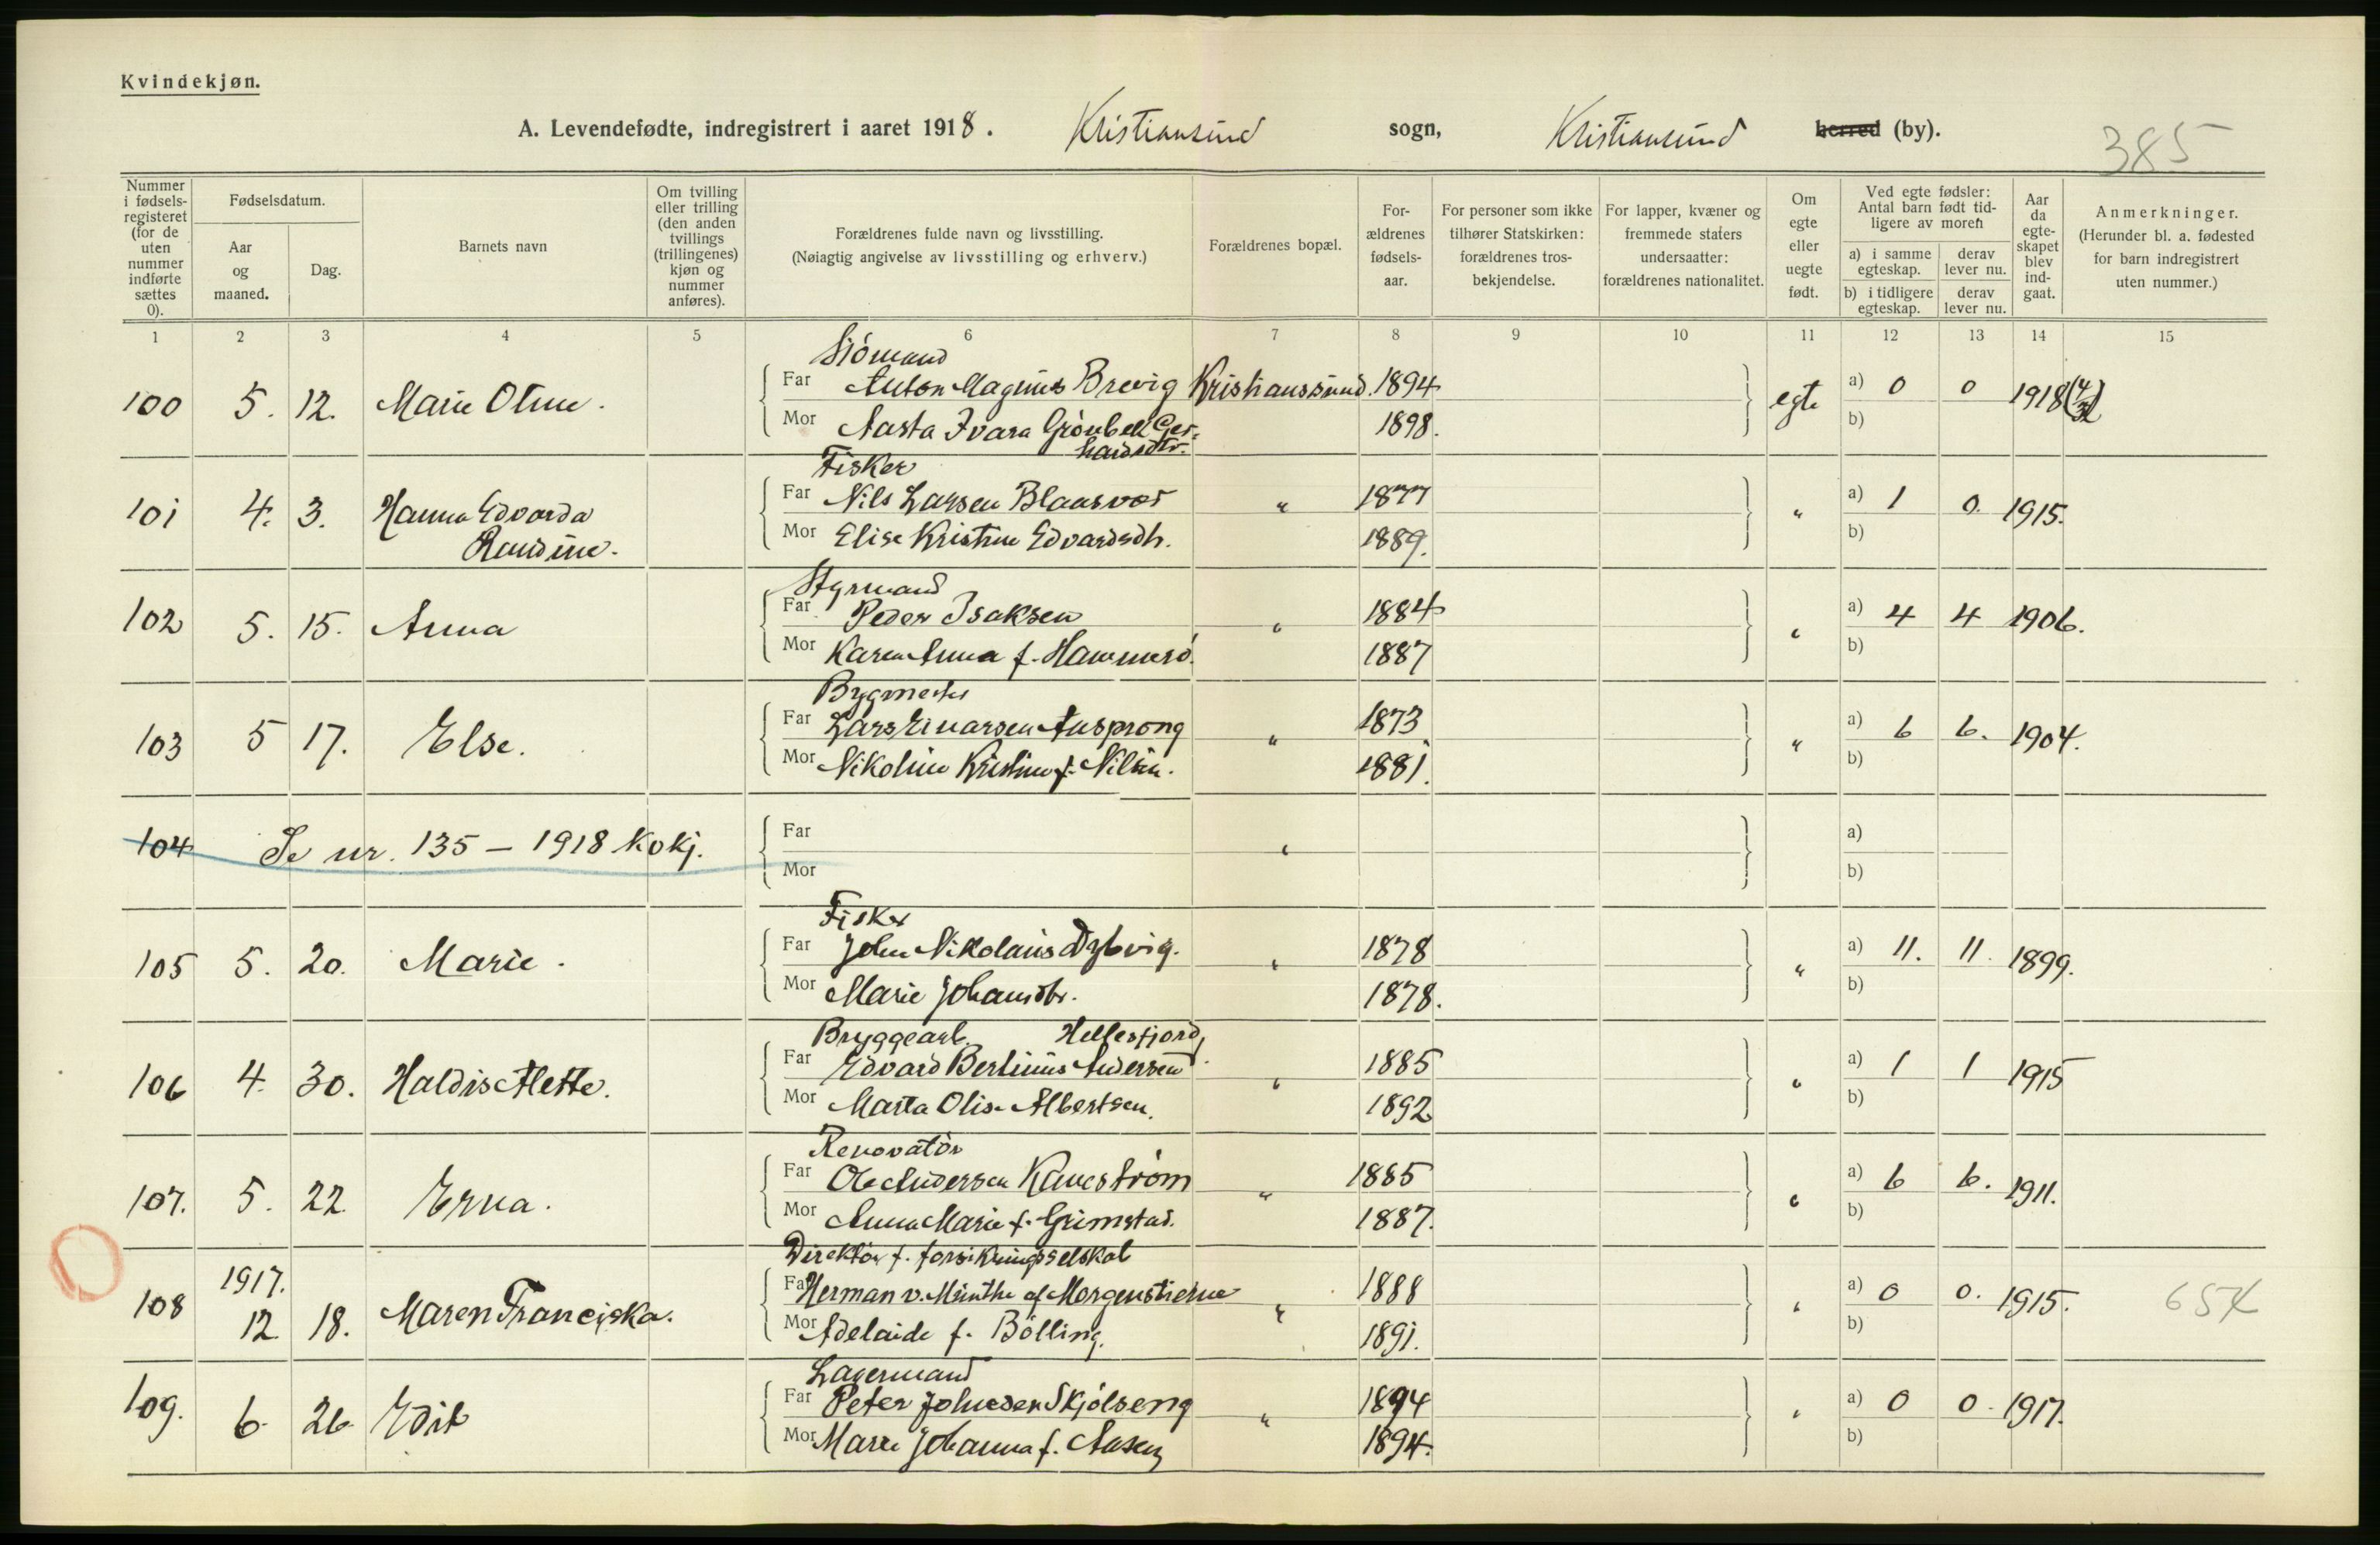 Kvindekjøn.
A. Levendefødte, indregistrert i aaret 1918. Kristiansund sogn, Kristiansund herred (by). 385
Nummer i fødselsregisteret (for de uten nummer indførte sættes 0).
Fødselsdatum.
Aar og maaned.
Dag.
Barnets navn
Om tvilling eller trilling (den anden tvillings (trillingenes) kjøn og nummer anføres).
Forældrenes fulde navn og livsstilling. (Nøiagtig angivelse av livsstilling og erhverv.)
Forældrenes bopæl.
Forældrenes fødselsaar.
For personer som ikke tilhører Statskirken: forældrenes trosbekjendelse.
For lapper, kvæner og fremmede staters undersaatter: forældrenes nationalitet.
Om egte eller uegte født.
Ved egte fødsler: Antal barn født tidligere av moren
a) i samme egteskap. derav lever nu.
b) i tidligere egteskap. derav lever nu.
Aar da egteskapet blev indgaat.
Anmerkninger. (Herunder bl. a. fødested for barn indregistrert uten nummer.)
1 2 3 4 5 6 7 8 9 10 11 12 13 14 15
Sjömand
100 5. 12. Marie Oline. Far Anton Magnus Brevig Kristianssund. 1894 egte a) 0 0 1918
Mor Aasta Ivara Grönbell Gerhardsdtr. 1898. b)
Fisker
101 4. 3. Hanna Edvarda Randine. Far Nils Larsen Blaasvær " 1877 " a) 1 0. 1915.
Mor Elise Kristine Edvardsdtr. 1889. b)
Styrmand
102 5. 15. Anna Far Peder Isaksen " 1884 " a) 4 4 1906.
Mor Karen Anna f. Hammerö. 1887 b)
Bygmester
103 5 17. Else. Far Lars Einarsen Ansprong " 1873 " a) 6 6. 1904.
Mor Nikoline Kristine f. Nilsen. 1881. b)
104 Se nr. 135 – 1918 kokj. Far " a)
Mor b)
Fisker
105 5. 20. Marie. Far John Nikolaus Dybvig. " 1878 " a) 11. 11. 1899.
Mor Marie Johansdtr. 1878. b)
Bryggearb. Hellesfjord,
106 4. 30. Haldis Alette. Far Edvard Bertinius Andersen " 1885 " a) 1 1 1915
Mor Marta Olise Albertsen. 1892 b)
Renovatör
107. 5. 22. Erna. Far Ole Andersen Kanestrøm " 1885 " a) 6 6. 1911.
Mor Anna Marie f. Grimstad. 1887. b)
Direktör f. forsikringsselskab
108 1917. 12 18. Maren Franciska. Far Herman v. Münthe af Morgenstierne " 1888 " a) 0 0. 1915. 654
Mor Adelaide f. Bölling. 1891. b)
Lagermand
109. 6. 26 Edit Far Peter Johnsen Skjölseng " 1894 " a) 0 0. 1917.
Mor Marie Johanna f. Aasen 1894. b)